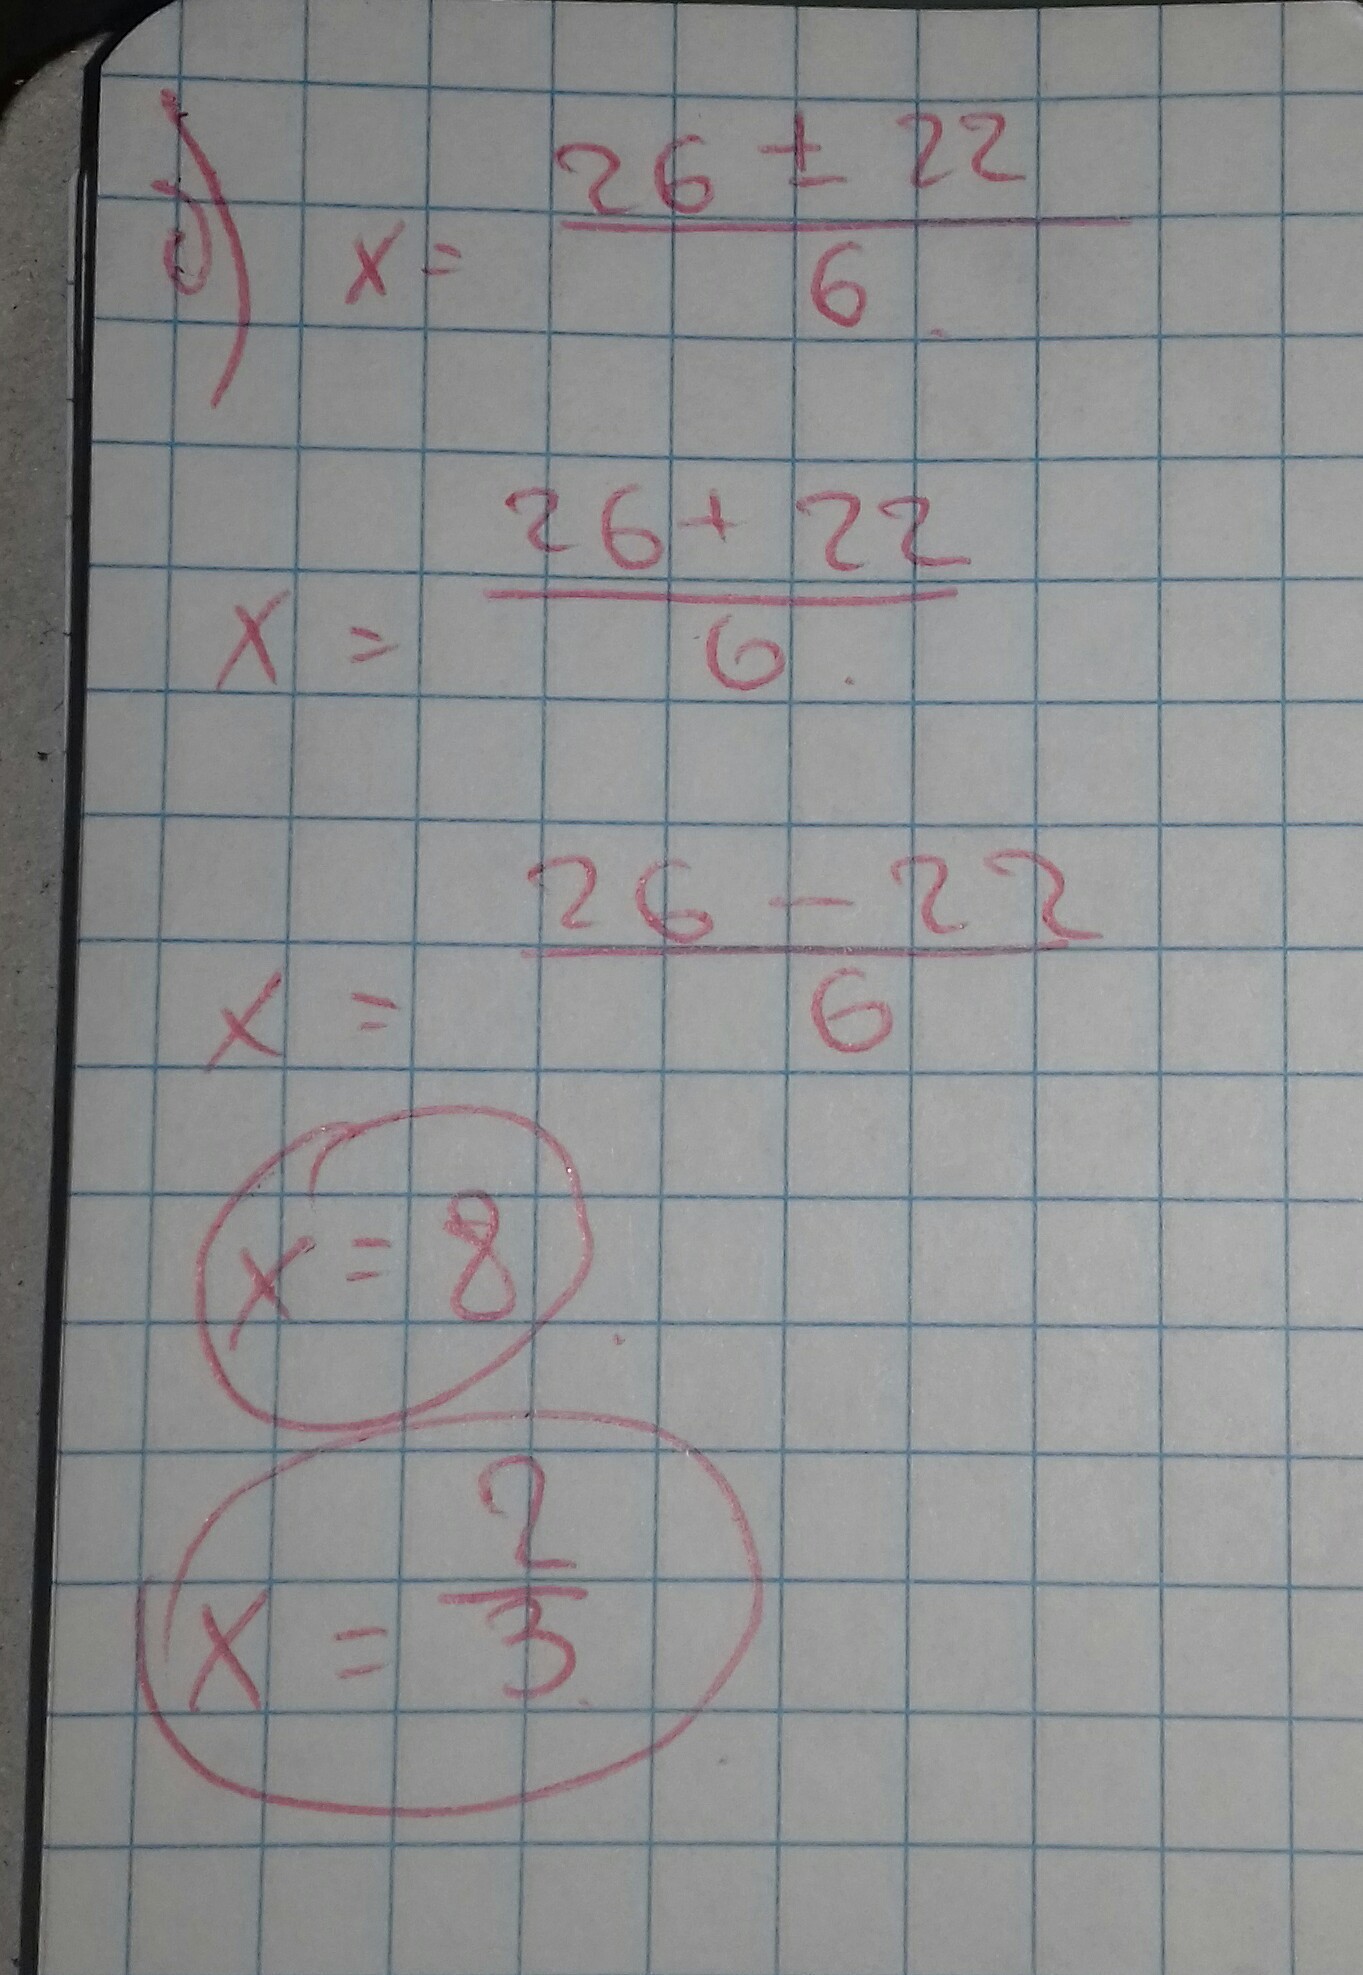 x = 26 ± 22 / 6
x = 26 + 22 / 6
x = 26 - 22 / 6
x = 8
x = 2/3